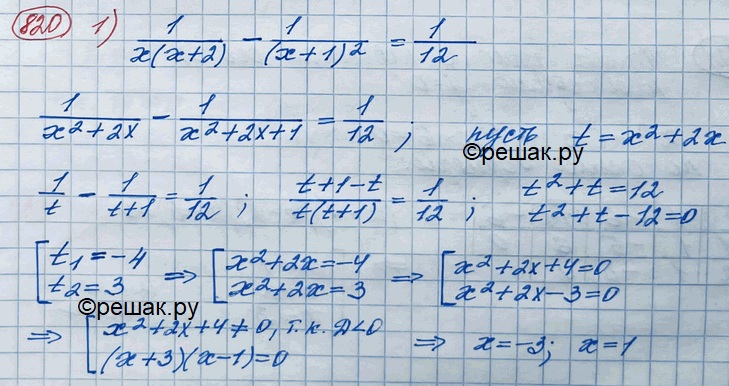 820 1) 1/(x(x+2)) - 1/(x+1)² = 1/12
1/(x²+2x) - 1/(x²+2x+1) = 1/12 ; пусть t = x²+2x
©решак.ру
1/t - 1/(t+1) = 1/12 ; (t+1-t)/(t(t+1)) = 1/12 ; t²+t=12
t²+t-12=0
[ t₁=-4 ⇒ [ x²+2x=-4 ⇒ [ x²+2x+4=0
t₂=3 x²+2x=3 x²+2x-3=0
©решак.ру
⇒ [ x²+2x+4≠0, т.к. D<0 ⇒ x=-3; x=1
(x+3)(x-1)=0